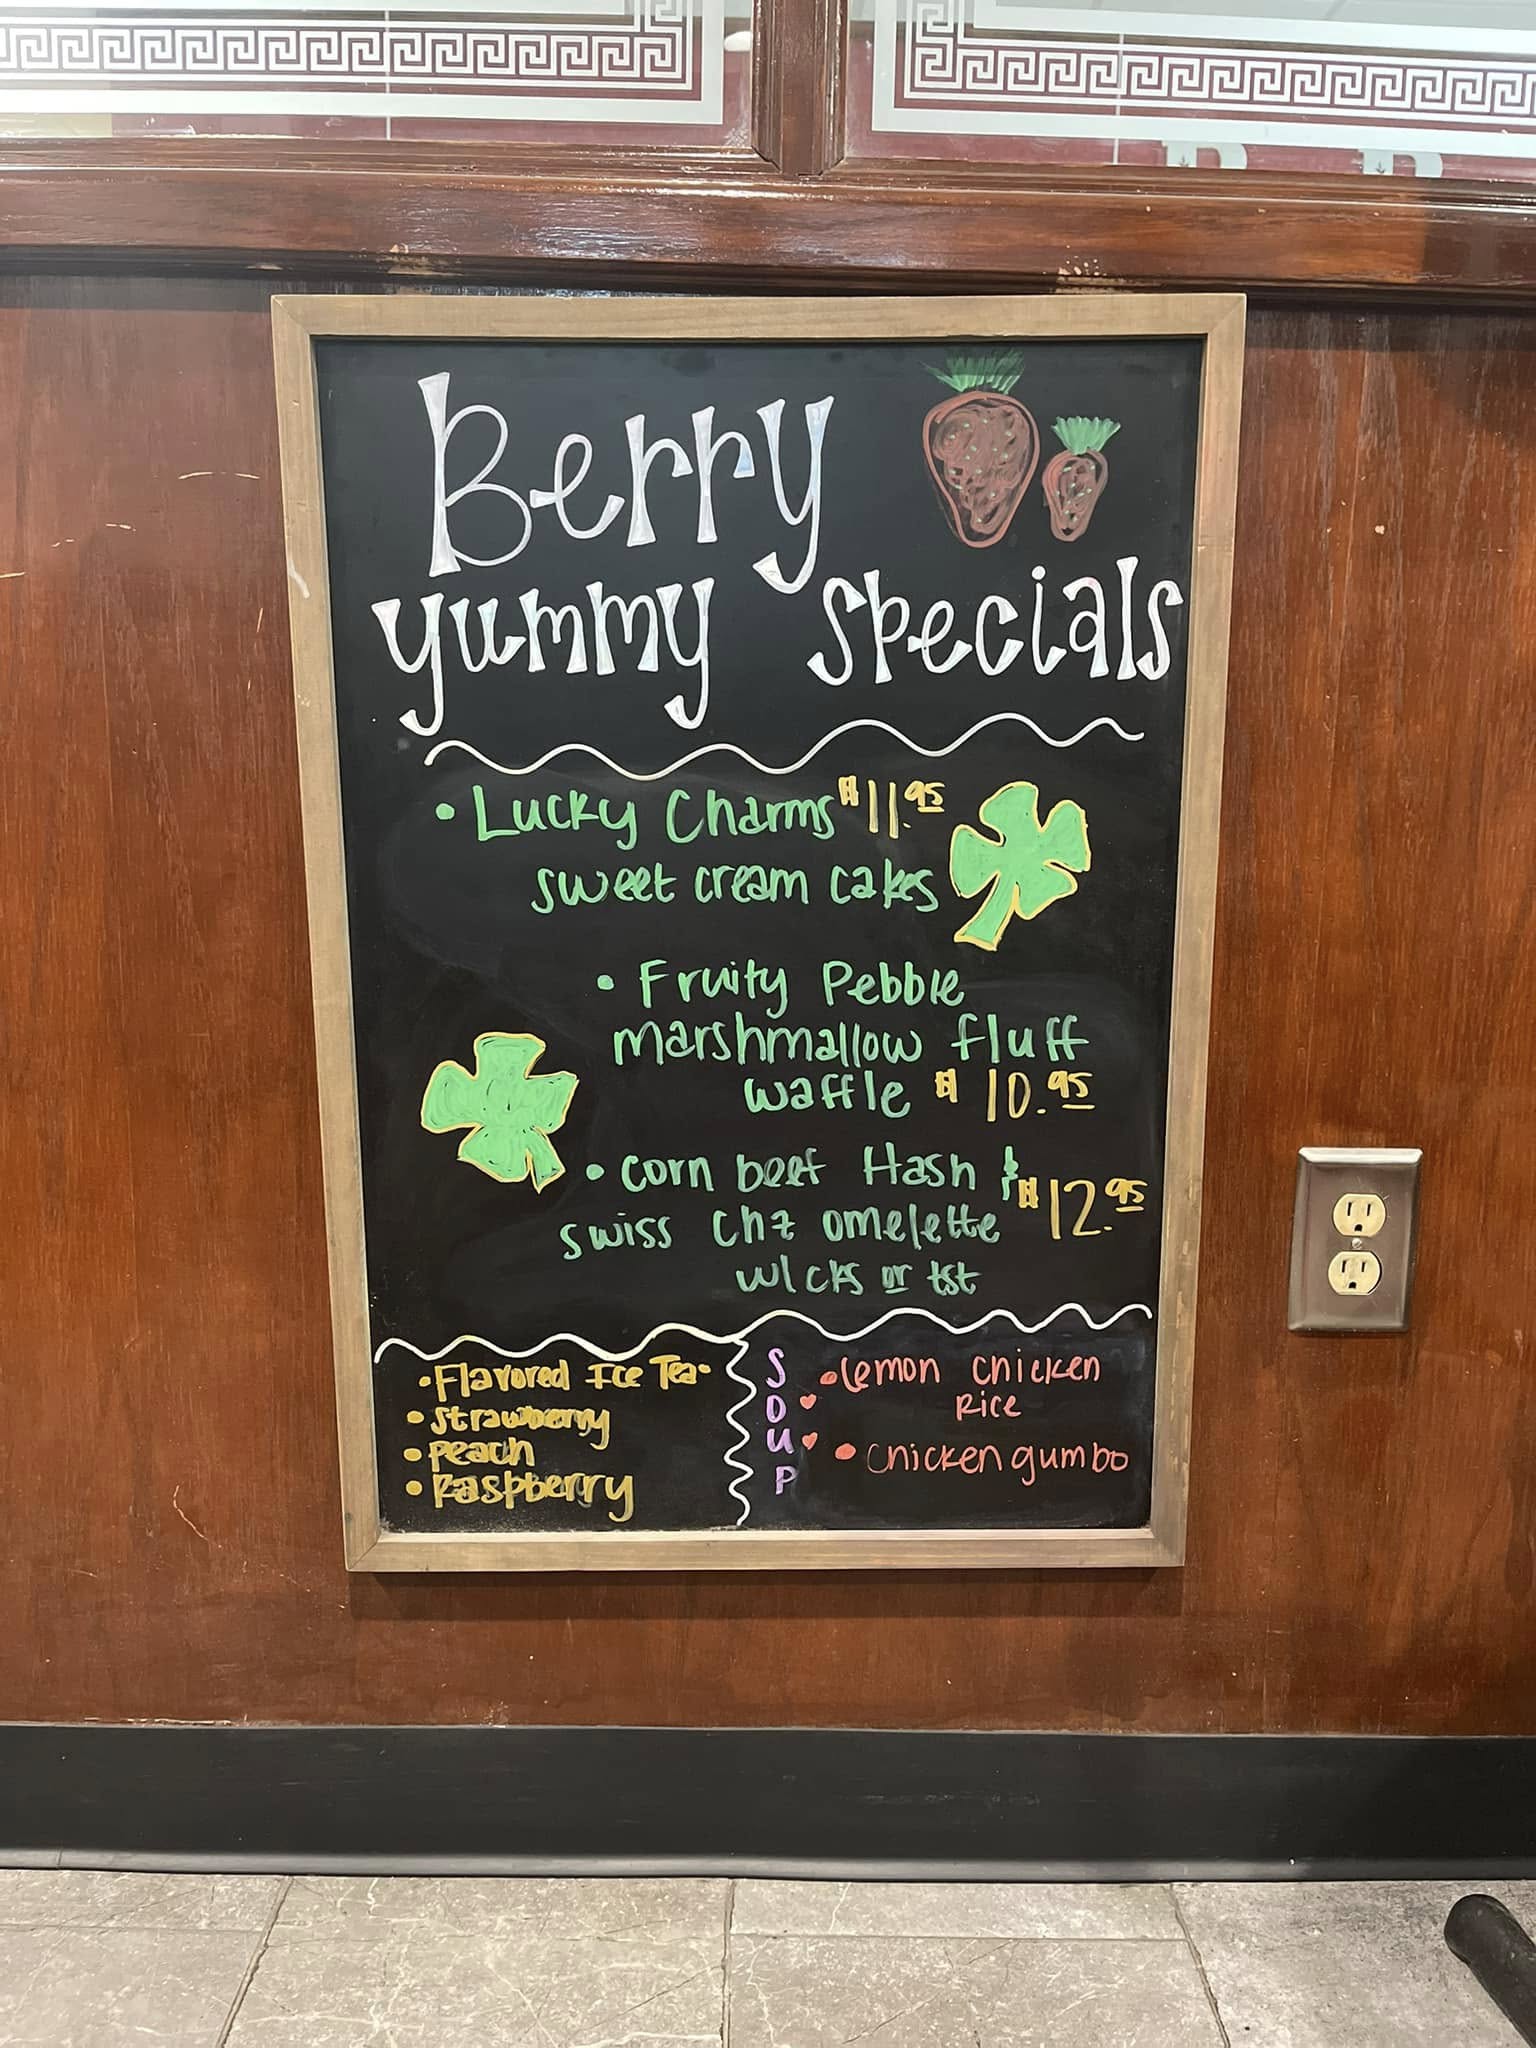 Berry
yummy specials
• Lucky Charms $11.95
sweet cream cakes
• Fruity Pebble
marshmallow fluff
waffle $10.95
• corn beef Hash $
swiss chz omelette $12.95
w/ cks or tst
• Flavored Ice Tea •
• Strawberry
• Peach
• Raspberry
SOUP
• Lemon Chicken
Rice
• Chicken gumbo